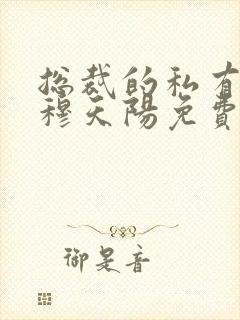 总裁的私有
穆天陽免費
御是音